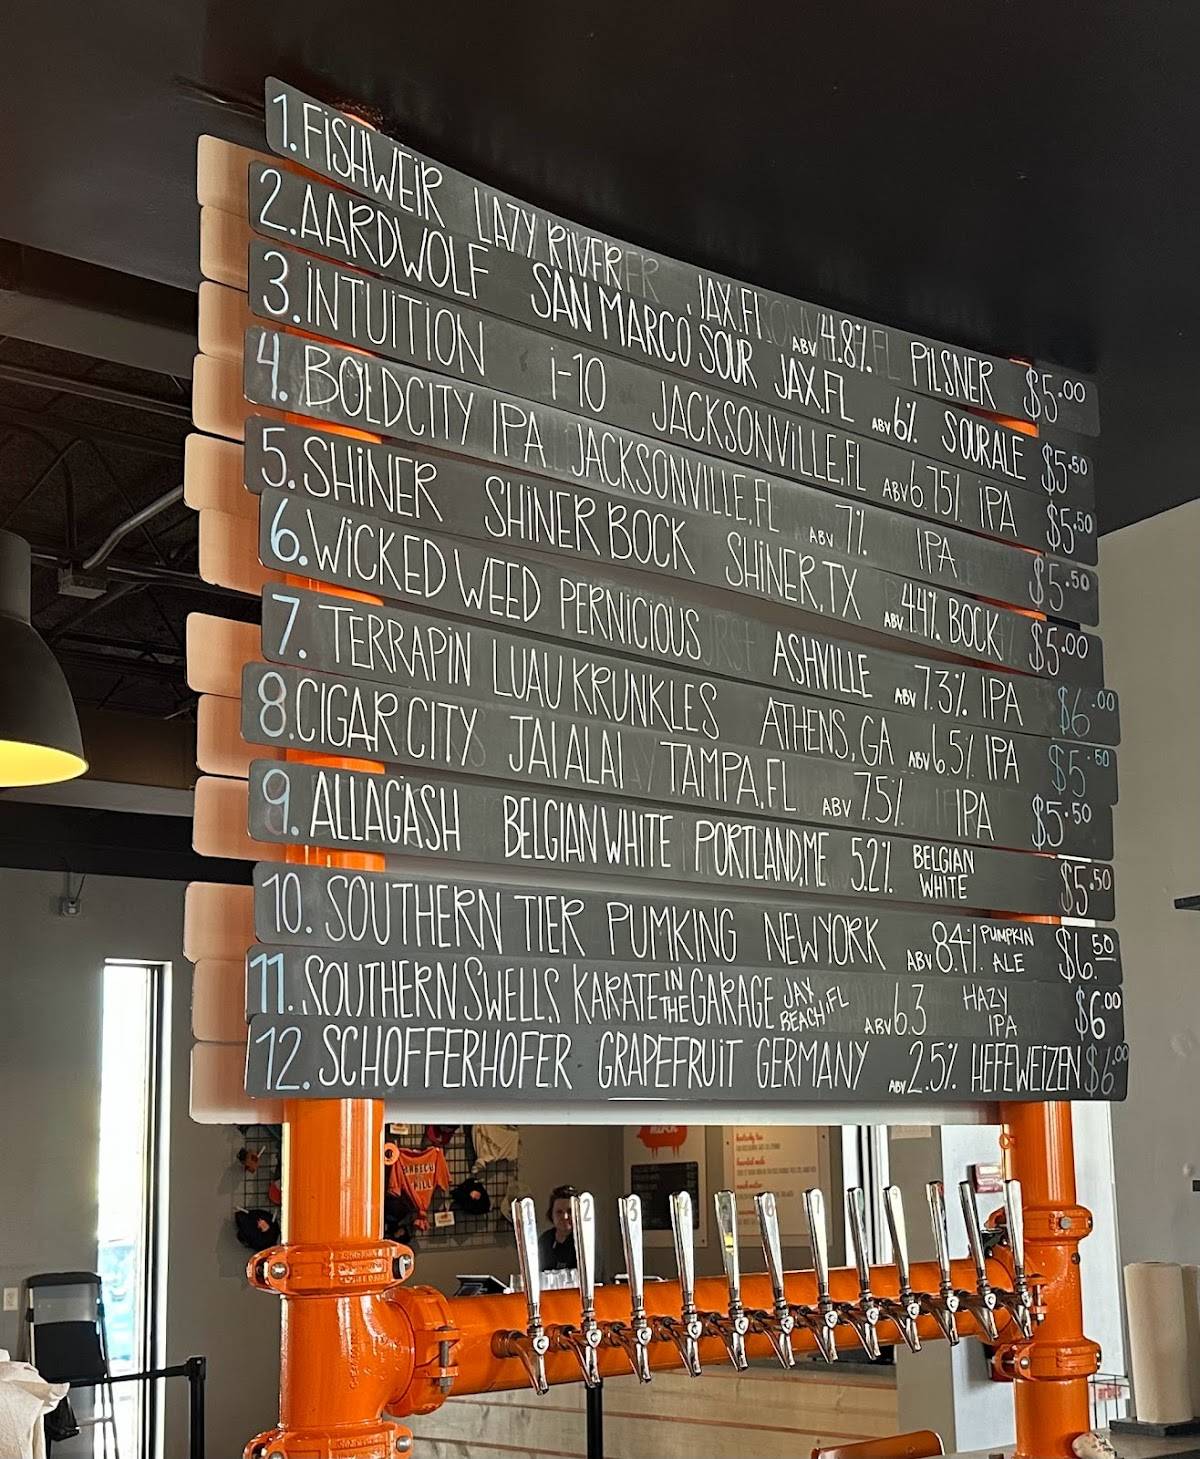 1. FISHWEIR LAZY RIVER JAX.Fl ABV 4.8% PILSNER $5.00
2. AARDWOLF SAN MARCO SOUR JAX,FL ABV 6% SOUR ALE $5.50
3. INTUITION i-10 JACKSONVILLE,FL ABV 6.75% IPA $5.50
4. BOLDCITY IPA JACKSONVILLE,FL ABV 7% IPA $5.50
5. SHINER SHINER BOCK SHINER,TX ABV 4.4% BOCK $5.00
6. WICKED WEED PERNICIOUS ASHVILLE ABV 7.3% IPA $6.00
7. TERRAPIN LUAU KRUNKLES ATHENS, GA ABV 6.5% IPA $5.50
8. CIGAR CITY JAI ALAI TAMPA,FL ABV 7.5% IPA $5.50
9. ALLAGASH BELGIAN WHITE PORTLAND,ME 5.2% BELGIAN WHITE $5.50
10. SOUTHERN TIER PUMKING NEW YORK ABV 8.4% PUMPKIN ALE $6.50
11. SOUTHERN SWELLS KARATE IN THE GARAGE JAX BEACH, FL ABV 6.3 HAZY IPA $6.00
12. SCHOFFERHOFER GRAPEFRUIT GERMANY ABV 2.5% HEFEWEIZEN $6.00
1 2 3 4 5 6 7